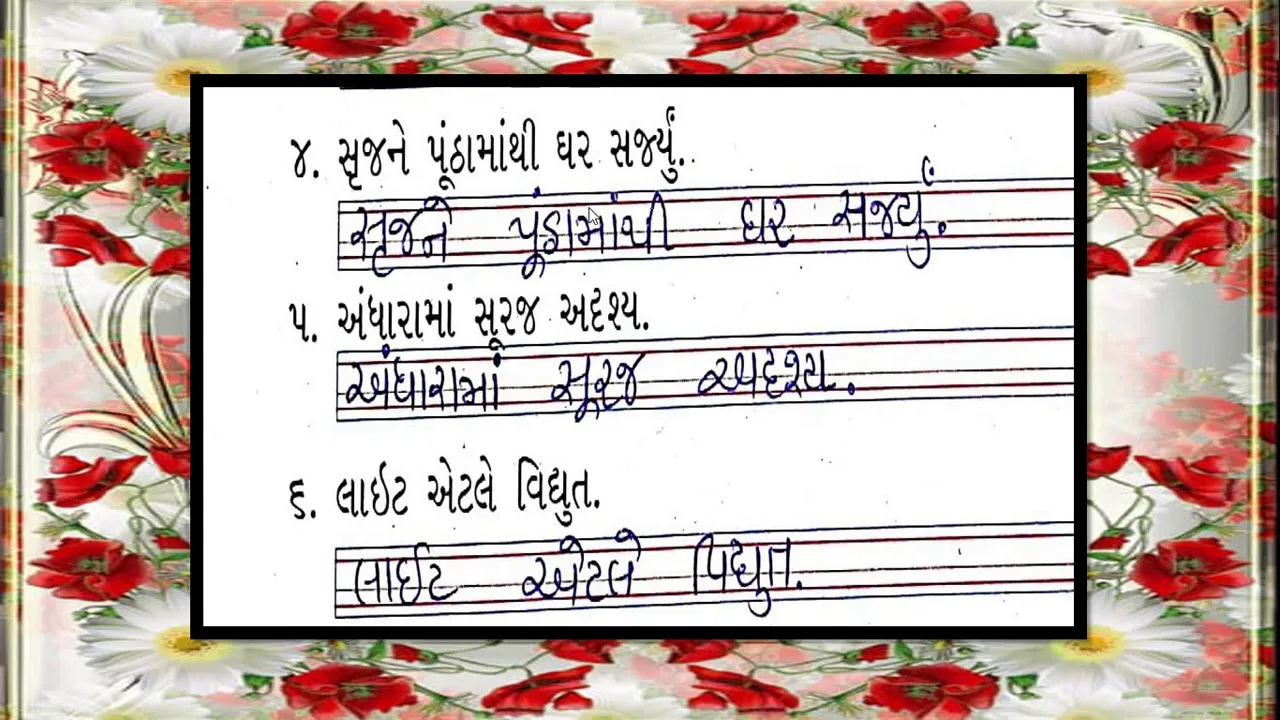 ૪. સૃજને પૂંઠામાંથી ઘર સર્જ્યું.
સૃજને પૂંઠામાંથી ઘર સર્જ્યું.
૫. અંધારામાં સૂરજ અદૃશ્ય.
અંધારામાં સૂરજ અદૃશ્ય.
૬. લાઇટ એટલે વિદ્યુત.
લાઈટ એટલે વિદ્યુત.